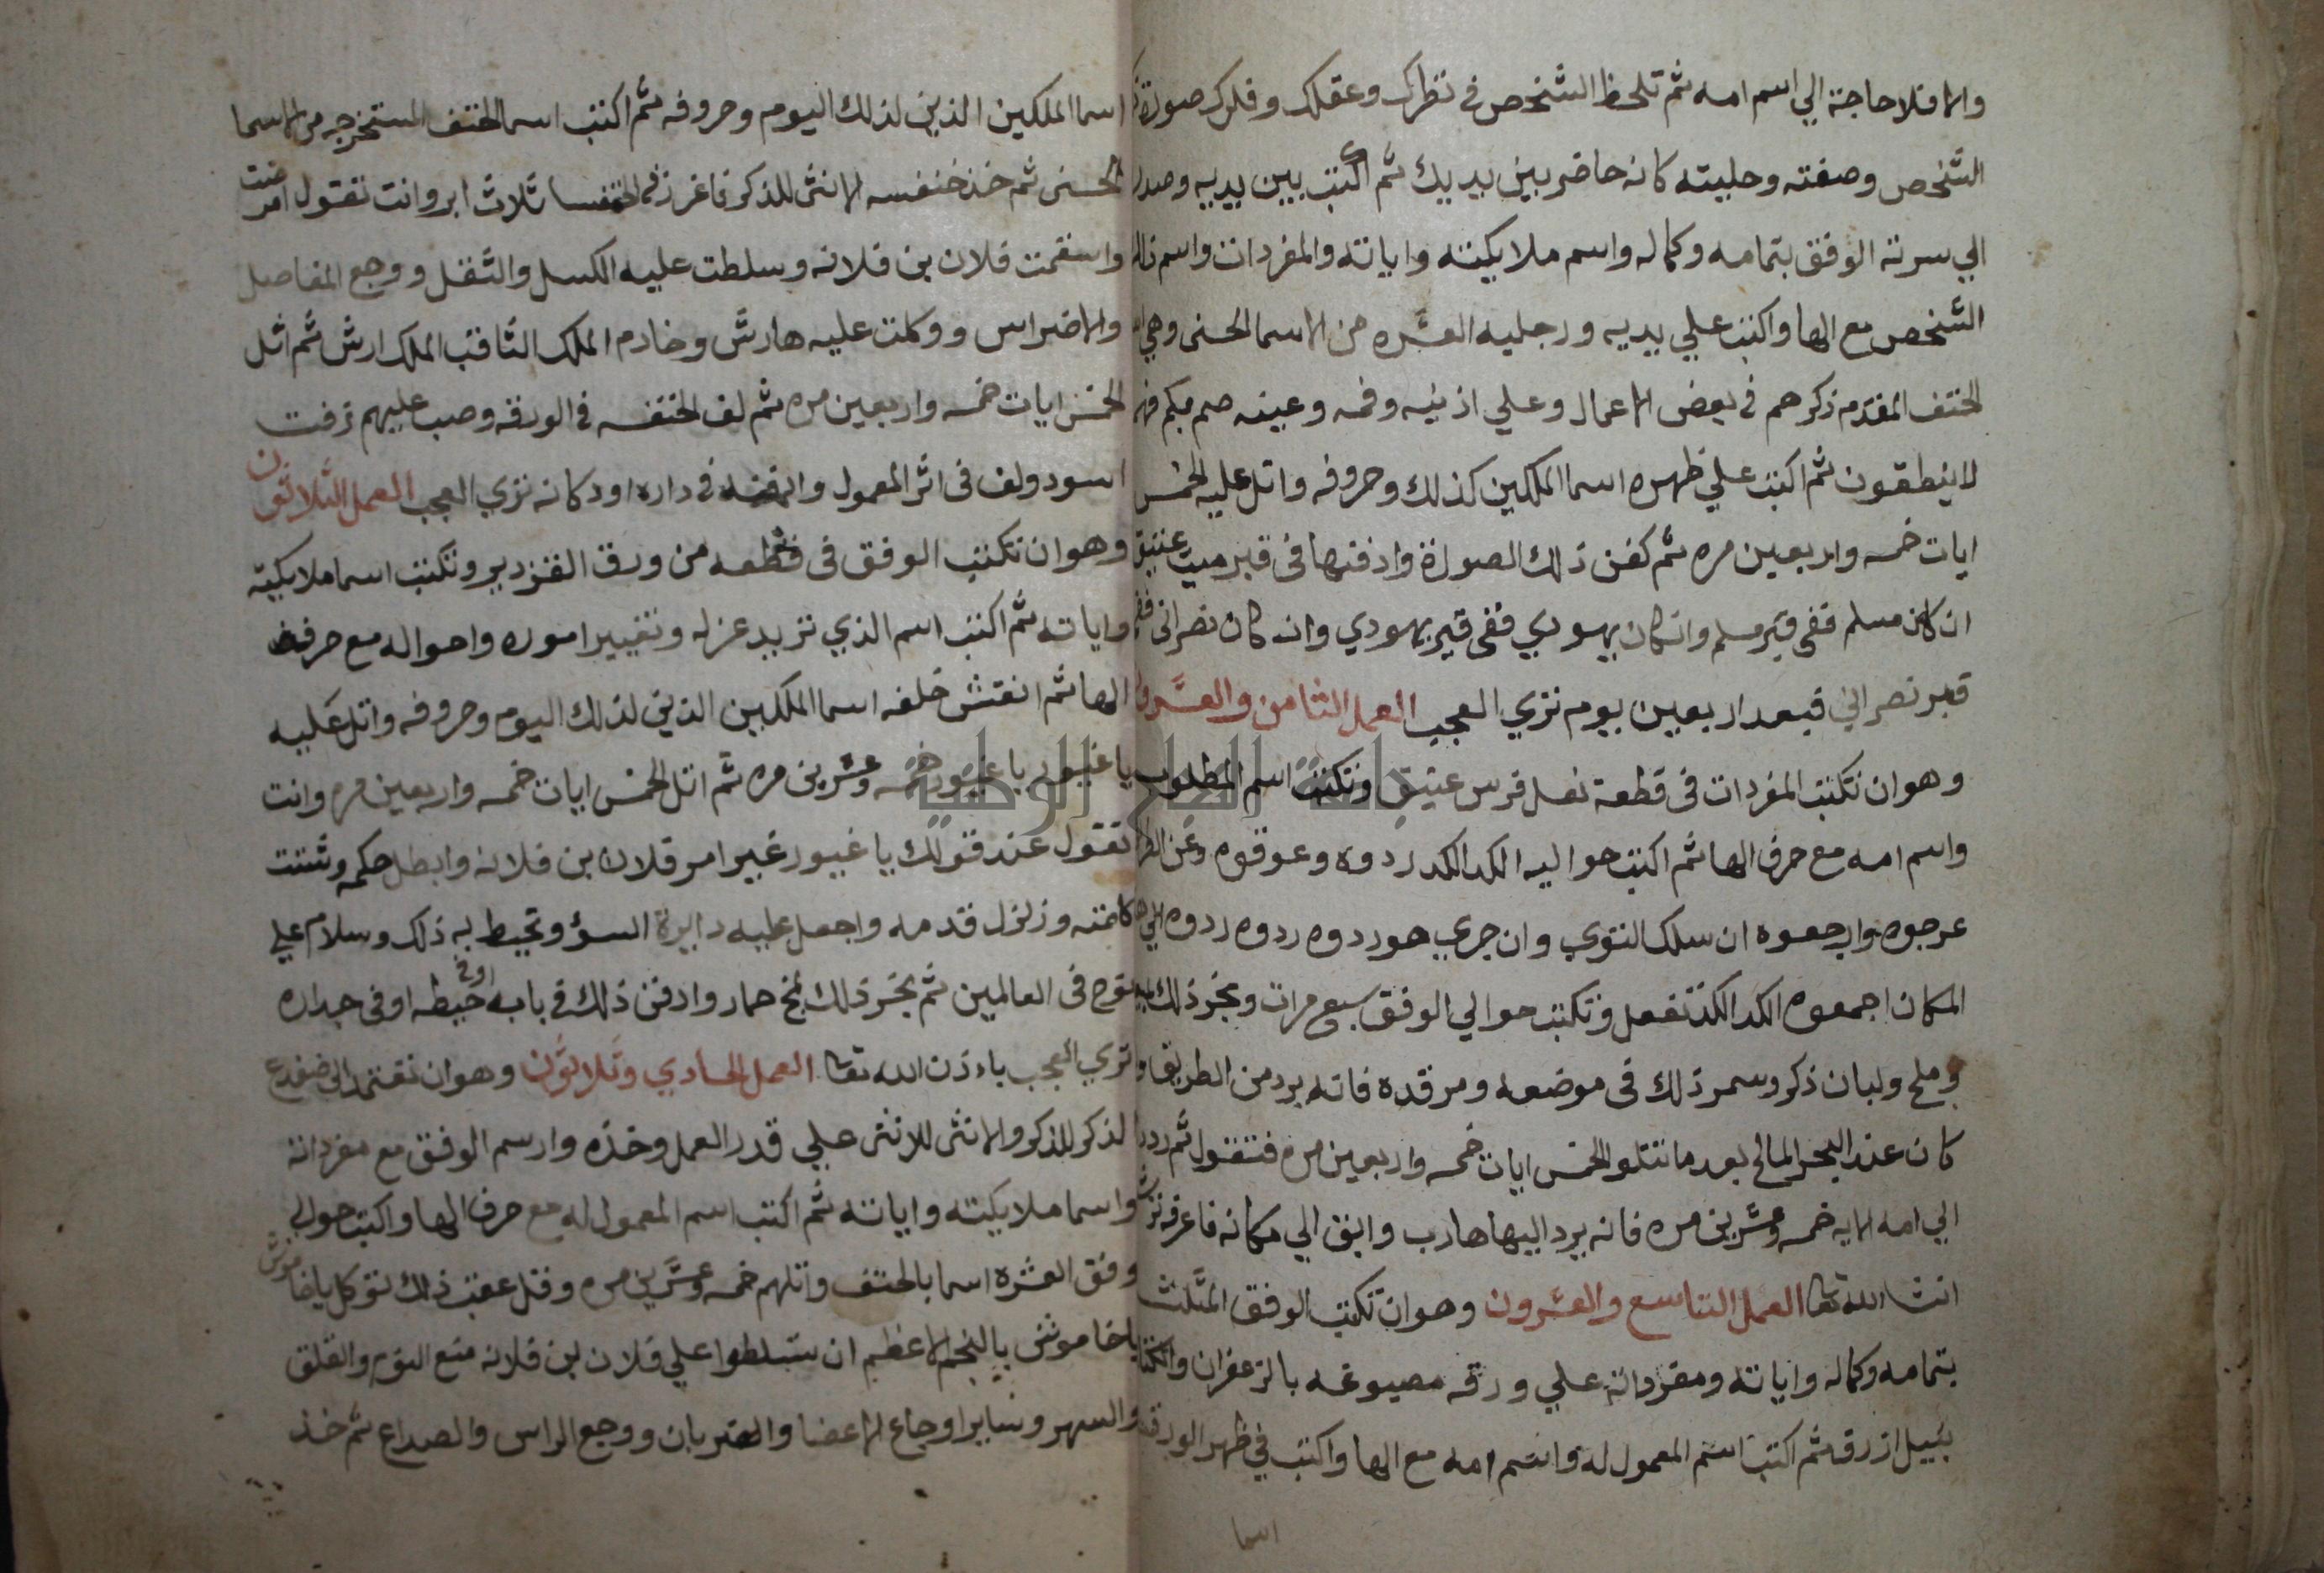 والا فلا حاجة الي اسم امه ثم تلحظ الشخص في نظرك وعقلك وفكرك صورة
الشخص وصفته وحليته كانه حاضر بين يديك ثم اكتب بين يديه وصدره
الي سرته الوفق بتمامه وكماله واسم ملايكته واياته والمفردات واسم ذلك
الشخص مع الها واكتب علي يديه ورجليه العشره من الاسما الحسنى وهي
الختف المقدم ذكرهم في بعض الاعمال وعلي اذنيه وفمه وعينه صم بكم فهم
لا ينطقون ثم اكتب علي ظهره اسما الملكين كذلك وحروفه واتل عليه الخمس
ايات خمسه واربعين مره ثم كفن ذلك الصورة وادفنها في قبر ميت عتيق
ان كان مسلم ففي قبر مسلم وان كان يهودي ففي قبر يهودي وان كان نصراني ففي
قبر نصراني فبعد اربعين يوم تري العجب العمل الثامن والعشرون
وهو ان تكتب المفردات في قطعة نعل فرس عتيق وتكتب اسم المطلوب
واسم امه مع حرف الها ثم اكتب حواليه الكد الكد ردوه وعوقوه وعن
عرجوه وارجعوه ان سلك النتوي وان جري هو ردوه ردوه ردوه الي
المكان اجمعوه الكد الكد تفعل وتكتب حوالي الوفق سبع مرات وبخر ذلك
وملح ولبان ذكر وسمر ذلك في موضعه ومرقده فانه يرد من الطريق
كان عند البحر المالح بعد ما تتلوا الخمس ايات خمسه واربعين مره فتقول ثم رددناه
الي امه الايه خمسه وعشرين مره فانه يرد اليها هارب وابق الي مكانه فاعرفه ترشد
انشا الله تعا العمل التاسع والعشرون وهو ان تكتب الوفق المثلث
بتمامه وكماله واياته ومفرداته علي ورقه مصبوغه بالزعفران والكتابة
بنيل ازرق ثم اكتب اسم المعمول له واسم امه مع الها واكتب في ظهر الورقه
اسما
اسما الملكين الذين لذلك اليوم وحروفه ثم اكتب اسما الختف المستخرجه من الاسما
الحسنى ثم خذ خنفسه الانثى للذكر فاغرز في الخنفسا ثلاث ابر وانت تقول امرضت
واسقمت فلان بن فلانه وسلطت عليه الكسل والثقل ووجع المفاصل
والاضراس ووكلت عليه هارش وخادم الملك الثاقب الملك ارش ثم اتل
الخمس ايات خمسه واربعين مره ثم لف الخنفسه في الورقه وصب عليهم زفت
اسود ولف في اثر المعمول وادفنه في داره او دكانه تري العجب العمل الثلاثون
وهو ان تكتب الوفق في قطعه من ورق القزدير وتكتب اسما ملايكته
واياته ثم اكتب اسم الذي تريد عزله وتغيير اموره واحواله مع حرف
الها ثم انقش خلفه اسما الملكين الذين لذلك اليوم وحروفه واتل عليه
يا غيور يا غيور خمسه وعشرين مره ثم اتل الخمس ايات خمسه واربعين مره وانت
تقول عند قولك يا غيور غير امر فلان بن فلانه وابطل حكمه وشتت
كلمته وزلزل قدمه واجعل عليه دايرة السؤ وتحيط به ذلك وسلام علي
نوح في العالمين ثم بخر ذلك بمخ حمار وادفن ذلك في بابه او في حيطه او في جداره
تري العجب باذن الله تعا العمل الحادي وثلاثون وهو ان تعتمد الي ضفدع
الذكر للذكر والانثى للانثى علي قدر العمل وخذه وارسم الوفق مع مفرداته
واسما ملايكته واياته ثم اكتب اسم المعمول له مع حرف الها واكتب حوالي
وفق العشرة اسما بالختف واتلهم خمسه وعشرين مره وقل عقب ذلك توكل يا خاموش
يا خاموش يا النجم الاعظم ان تسلطوا علي فلان بن فلانه منع النوم والقلق
والسهر وساير اوجاع الاعضا والضربان ووجع الراس والصداع ثم خذ
جامعة النجاح الوطنية